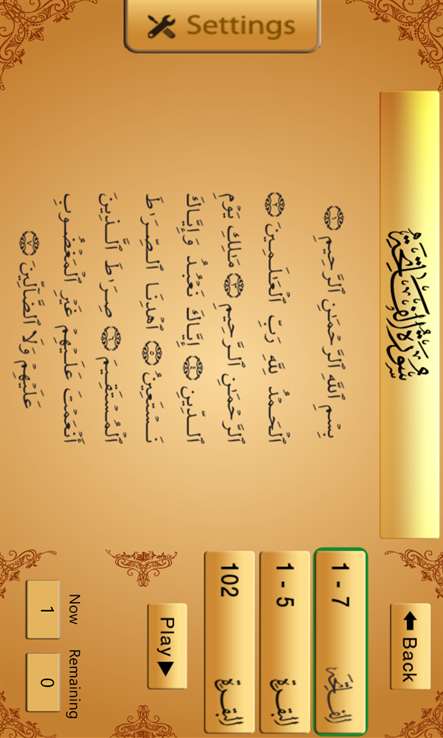 Settings
سورة الفاتحة
بِسْمِ ٱللَّهِ ٱلرَّحْمَـٰنِ ٱلرَّحِيمِ ١
ٱلْحَمْدُ لِلَّهِ رَبِّ ٱلْعَـٰلَمِينَ ٢
ٱلرَّحْمَـٰنِ ٱلرَّحِيمِ ٣ مَـٰلِكِ يَوْمِ
ٱلدِّينِ ٤ إِيَّاكَ نَعْبُدُ وَإِيَّاكَ
نَسْتَعِينُ ٥ ٱهْدِنَا ٱلصِّرَٰطَ
ٱلْمُسْتَقِيمَ ٦ صِرَٰطَ ٱلَّذِينَ
أَنْعَمْتَ عَلَيْهِمْ غَيْرِ ٱلْمَغْضُوبِ
عَلَيْهِمْ وَلَا ٱلضَّآلِّينَ ٧
Back
1 - 7 الفاتحة
1 - 5 البقرة
102 البقرة
Play
Now Remaining
1 0